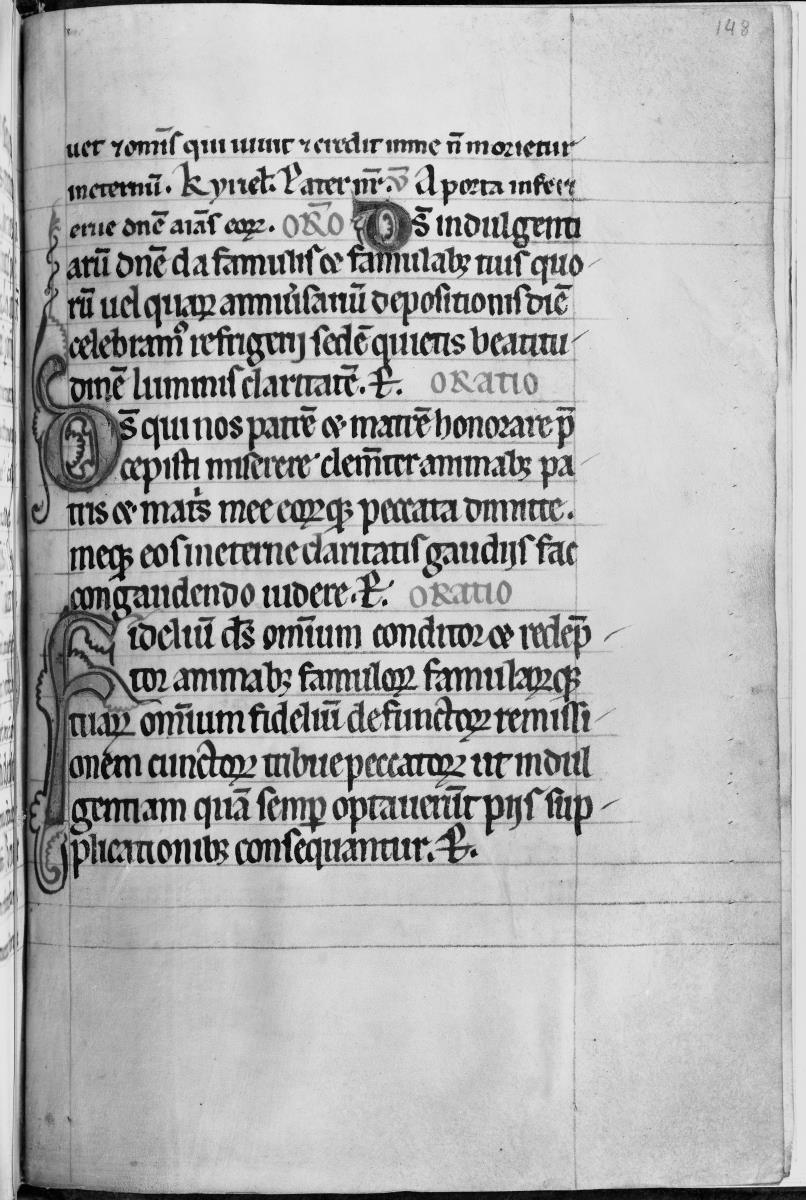 148
uet ⁊ om̄is qui uiuit ⁊ credit inme n̄ morietur
ineternū. Kyriel. Pater nr̄. v̄ A porta inferi
erue dn̄e aīas eoꝝ. OR̄O Ds̄ indulgenti
arū dn̄e da famulis ⁊ famulabꝫ tuis quo
rū uel quaꝝ anniu̇sariū depositionis diē
celebramꝰ refrigerij sedē quietis beatitu
dinē luminis claritatē. P̄. ORATIO
Ds̄ qui nos patrē ⁊ matrē honorare p̄
cepisti miserere clem̄ter animabꝫ pa
tris ⁊ mat̍s mee eoꝝqꝫ peccata dimitte.
meqꝫ eos ineterne claritatis gaudijs fac
congaudendo uidere. P̄. ORATIO
Fideliū ds̄ om̄ium conditor ⁊ redēp
tor animabꝫ famuloꝝ famulaꝝqꝫ
tuaꝝ om̄ium fideliū defunctoꝝ remissi
onem cunctoꝝ tribue peccatoꝝ ut indul
gentiam quā semꝑ optauer̄ut pijs sup
plicationibꝫ consequantur. P̄.